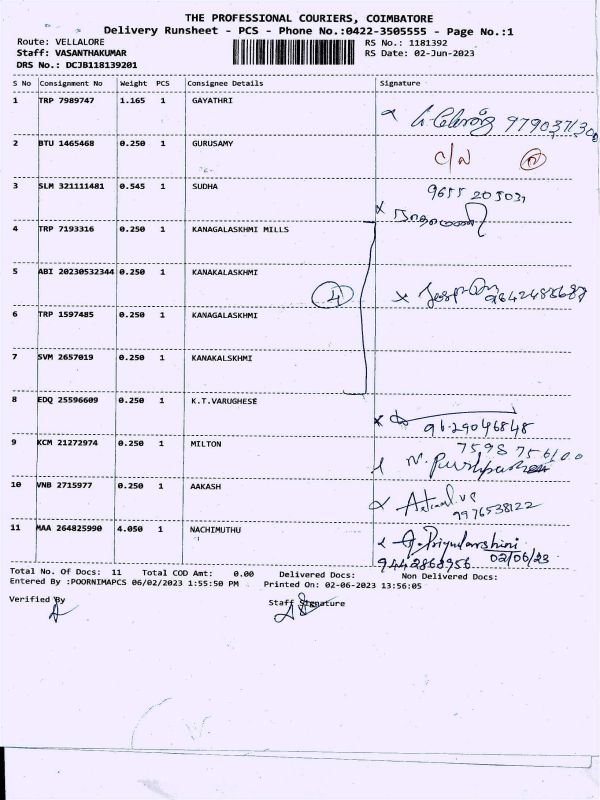 THE PROFESSIONAL COURIERS, COIMBATORE
Delivery Runsheet - PCS - Phone No.:0422-3505555 - Page No.:1
Route: VELLALORE RS No.: 1181392
Staff: VASANTHAKUMAR RS Date: 02-Jun-2023
DRS No.: DCJB118139201
S No Consignment No Weight PCS Consignee Details Signature
1 TRP 7989747 1.165 1 GAYATHRI
2 BTU 1465468 0.250 1 GURUSAMY
3 SLM 321111481 0.545 1 SUDHA
4 TRP 7193316 0.250 1 KANAGALASKHMI MILLS
5 ABI 20230532344 0.250 1 KANAKALASKHMI
4
6 TRP 1597485 0.250 1 KANAGALASKHMI
7 SVM 2657019 0.250 1 KANAKALSKHMI
8 EDQ 25596609 0.250 1 K.T.VARUGHESE
9629046848
9 KCM 21272974 0.250 1 MILTON
10 VNB 2715977 0.250 1 AAKASH
9976538122
11 MAA 264825990 4.050 1 NACHIMUTHU
G. Priyadarshini
9442868956 02/06/23
Total No. Of Docs: 11 Total COD Amt: 0.00 Delivered Docs: Non Delivered Docs:
Entered By :POORNIMAPCS 06/02/2023 1:55:50 PM Printed On: 02-06-2023 13:56:05
Verified By Staff Signature